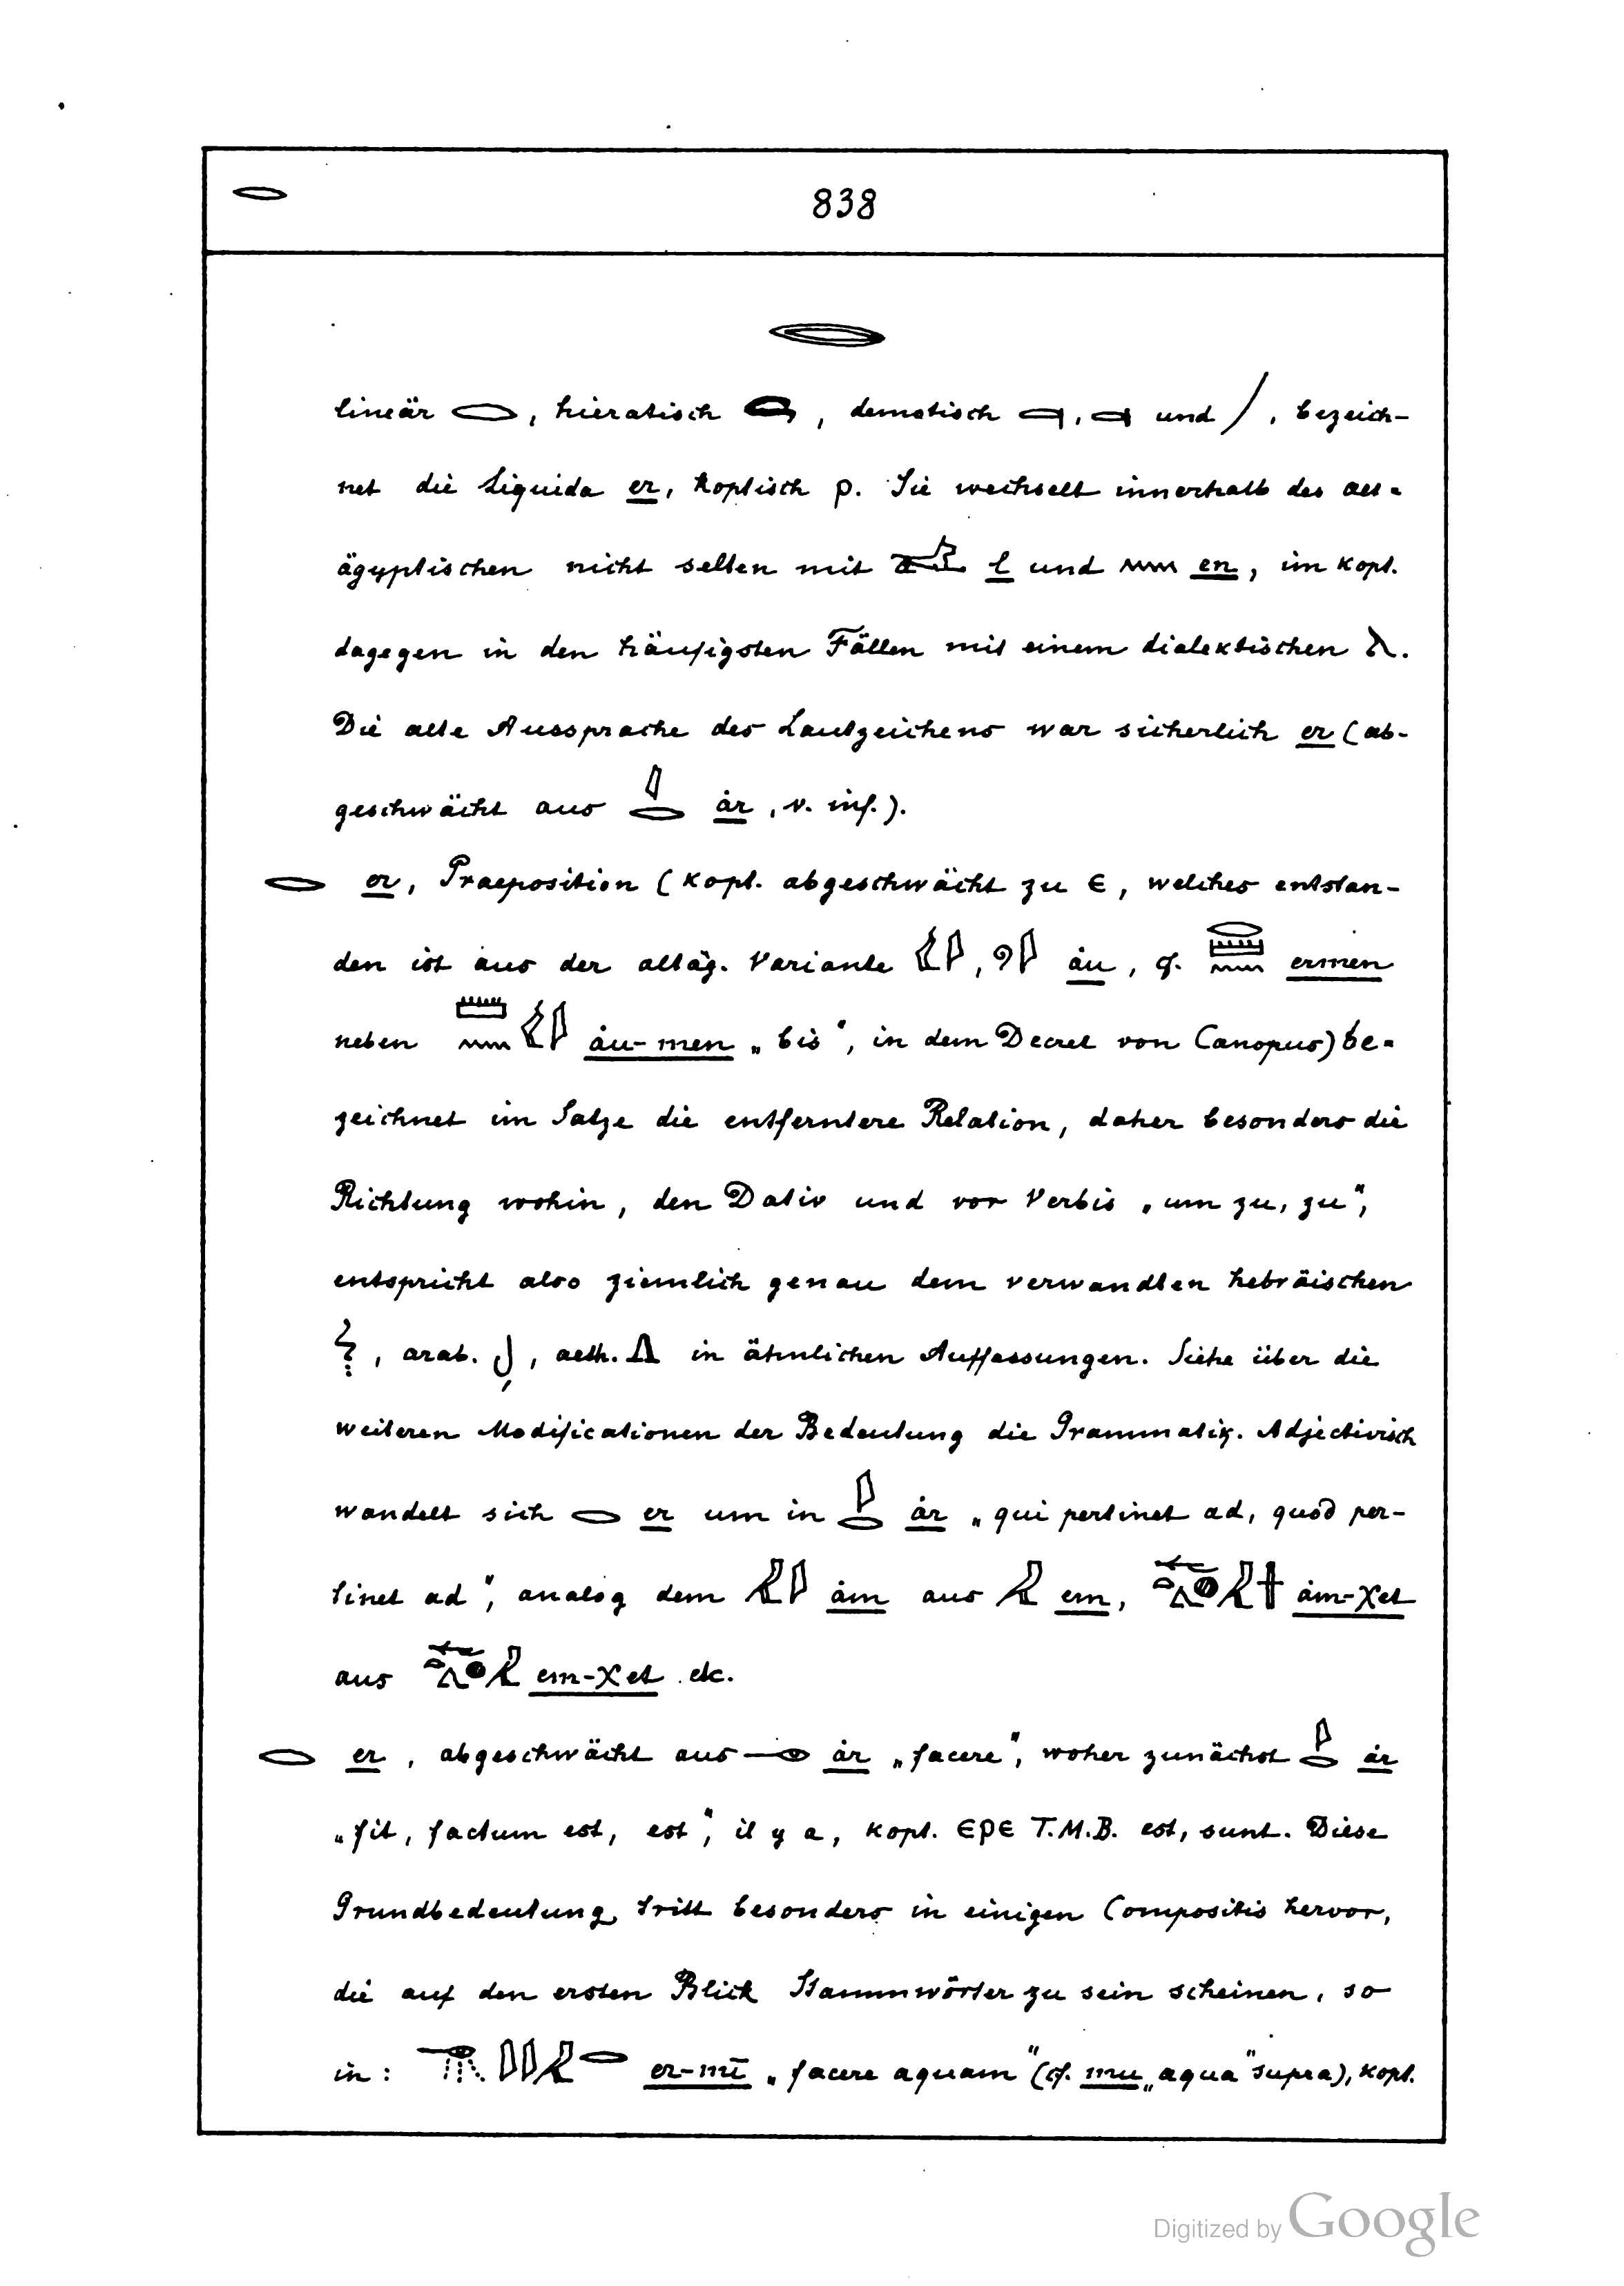 𓂋 838
𓂋
lineär 𓂋, hieratisch , demotisch , und /, bezeich-
net die Liquida er, koptisch ⲣ. Sie wechselt innerhalb des alt-
ägyptischen nicht selten mit 𓃭 l und 𓈖 en, im kopt.
dagegen in den häufigsten Fällen mit einem dialektischen ⲗ.
Die alte Aussprache des Lautzeichens war sicherlich er (ab-
geschwächt aus 𓇋𓂋 ȧr, v. inf.).
𓂋 er, Praeposition (kopt. abgeschwächt zu ⲉ, welches entstan-
den ist aus der altäg. Variante 𓇋𓅱, 𓇋𓏲 ȧu, cf. 𓂋𓏠𓈖 ermen
neben 𓇋𓅱𓏠𓈖 ȧu-men „bis“, in dem Decret von Canopus) be-
zeichnet im Satze die entferntere Relation, daher besonders die
Richtung wohin, den Dativ und vor Verbis „um zu, zu“,
entspricht also ziemlich genau dem verwandten hebräischen
לְ, arab. لِ, aeth. ለ in ähnlichen Auffassungen. Siehe über die
weiteren Modificationen der Bedeutung die Grammatik. Adjectivisch
wandelt sich 𓂋 er um in 𓇋𓂋 ȧr „qui pertinet ad, quod per-
tinet ad“, analog dem 𓇋𓅓 ȧm aus 𓅓 em, 𓏶𓅓𓐍𓂻𓏏𓆱 ȧm-χet
aus 𓅓𓐍𓂻𓏏𓆱 em-χet etc.
𓂋 er, abgeschwächt aus 𓁹 ȧr „facere“, woher zunächst 𓇋𓂋 ȧr
„fit, factum est, est“, il y a, kopt. ⲉⲣⲉ T.M.B. est, sunt. Diese
Grundbedeutung tritt besonders in einigen Compositis hervor,
die auf den ersten Blick Stammwörter zu sein scheinen, so
in: 𓂋𓅓𓇋𓇋𓁿 er-mī „facere aquam“ (cf. mu „aqua“ supra), kopt.
Digitized by Google